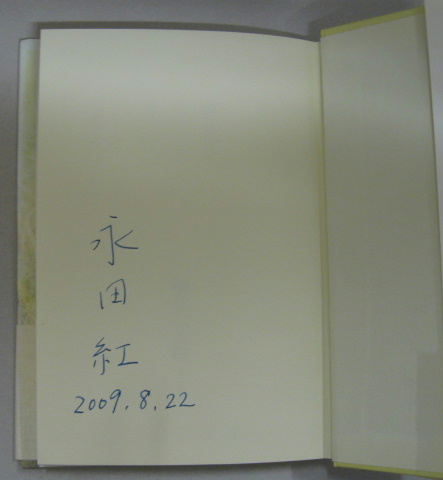 永田紅
2009.8.22